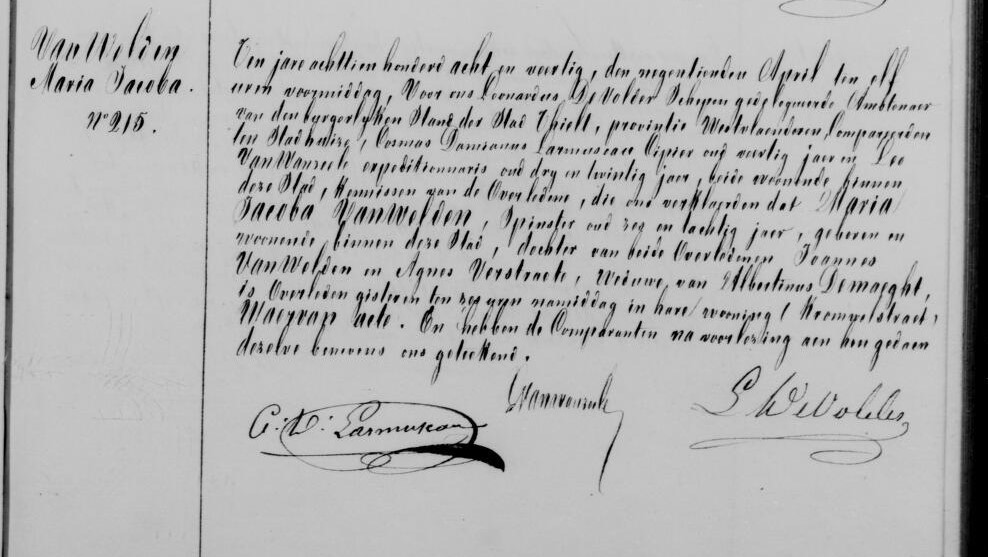 Van Welden
Maria Jacoba.
N° 215.
Ten jare achttien honderd acht en veertig, den negentienden April ten elf
uren voormiddag, Voor ons Leonardus De Volder Schepen gedelegueerde Ambtenaer
van den burgerlyken Stand der Stad Thielt, provintie Westvlaenderen, Compareerden
ten Stadhuize, Cosmas Damianus Larmuseau Cipier oud veertig jaer en Leo
VanWanseele expeditionnaris oud dry en twintig jaer, beide woonende binnen
deze Stad, kennissen van de Overledene, die ons verklaerden dat Maria
Jacoba VanWelden, Spinster oud zes en tachtig jaer, geboren en
woonende binnen deze Stad, dochter van beide Overledenen Joannes
VanWelden en Agnes Verstraete, Weduwe van Albertinus Demaeght,
is Overleden gisteren ten zes uren namiddag in hare wooning (Krompelstraet)
Waervan acte. En hebben de Comparanten na voorlezing aen hen gedaen
dezelve benevens ons geteekend.
C: D: Larmuseau
L De Volder